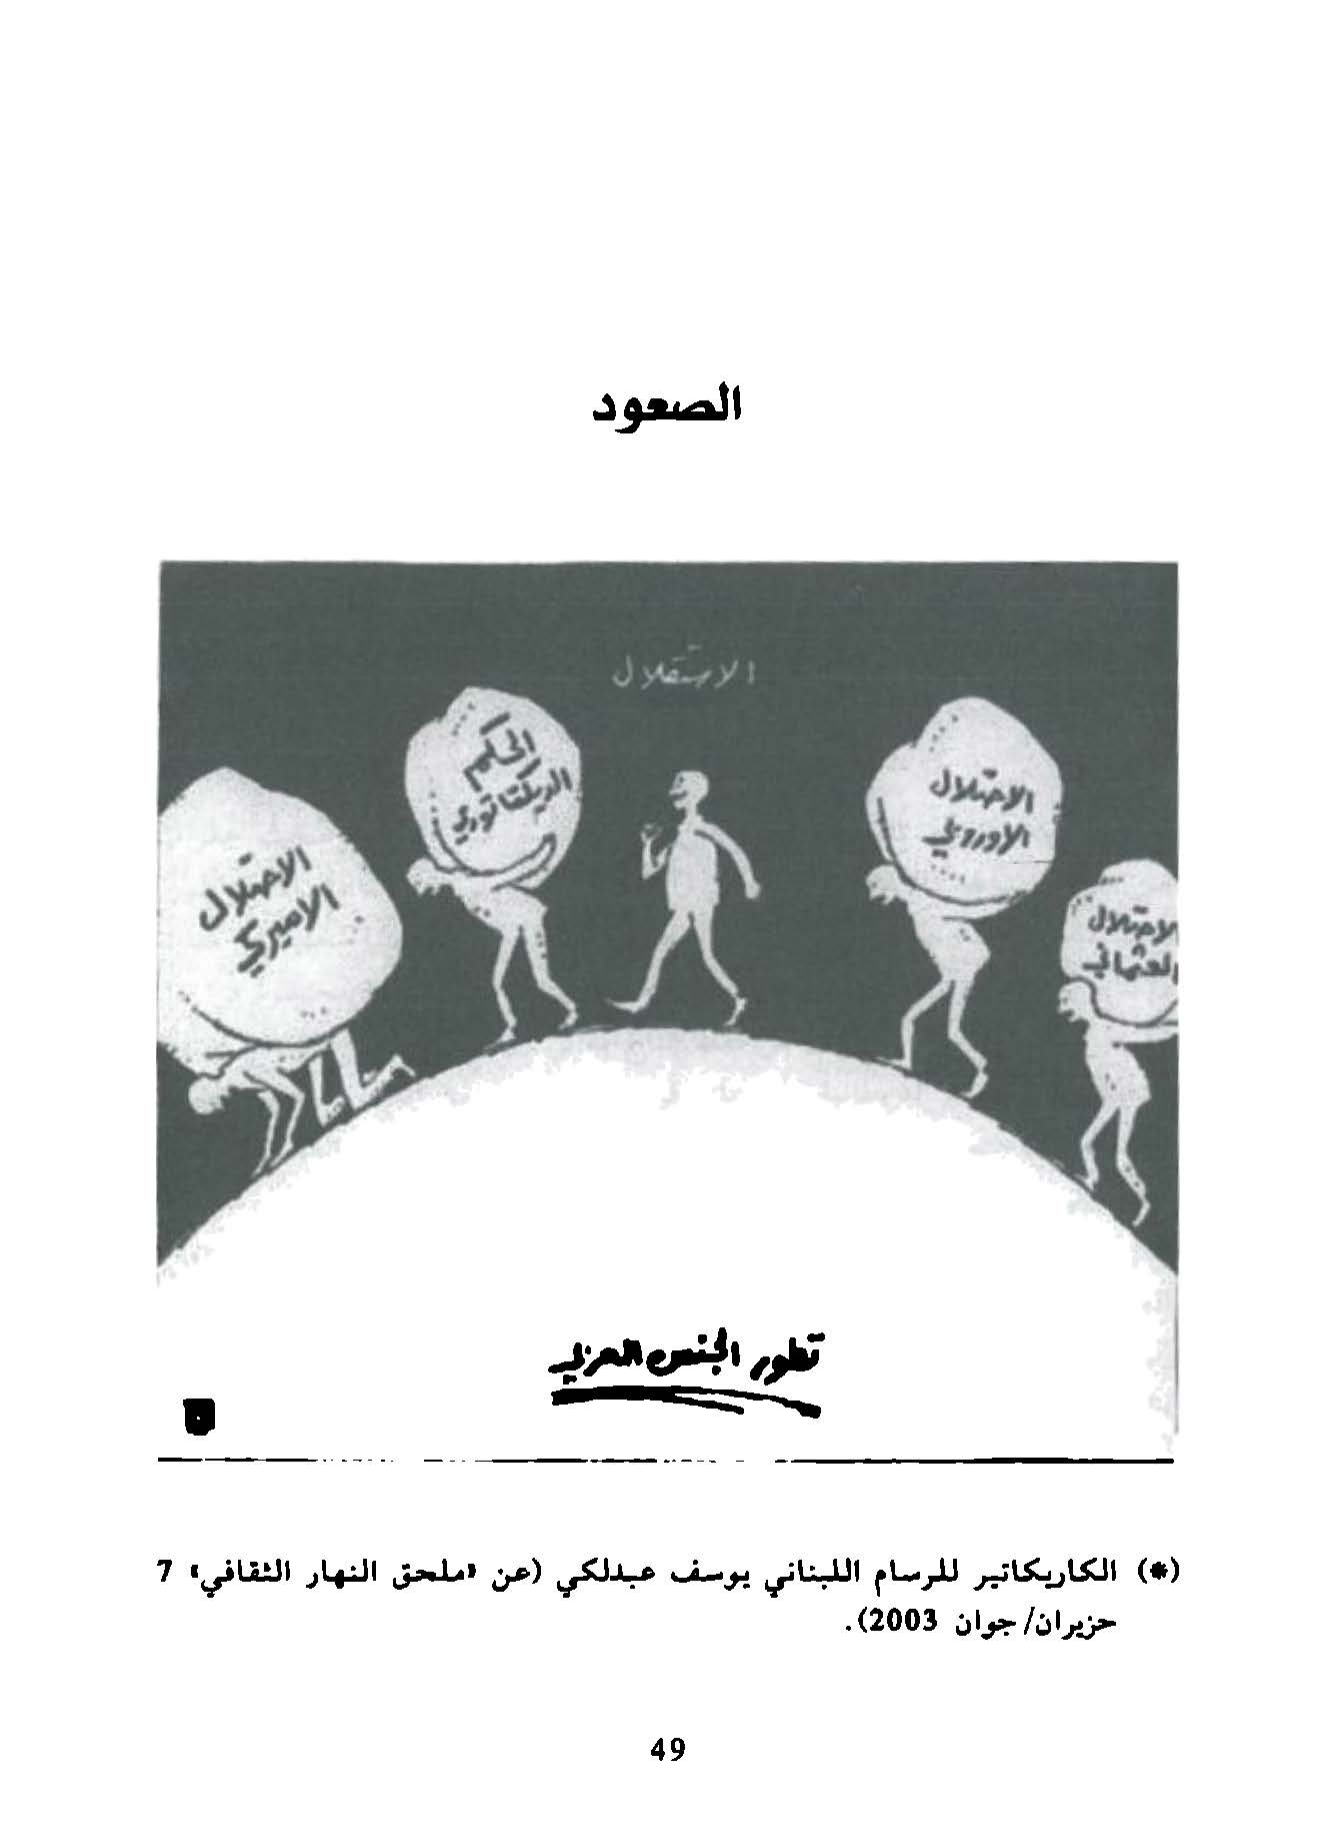 الصعود
الاستقلال
الاحتلال
العثماني
الاحتلال
الاوروبي
الحكم
الديكتاتوري
الاحتلال
الاميركي
تطور الجنس العربي
(*) الكاريكاتير للرسام اللبناني يوسف عبدلكي (عن «ملحق النهار الثقافي» 7
حزيران/جوان 2003).
49